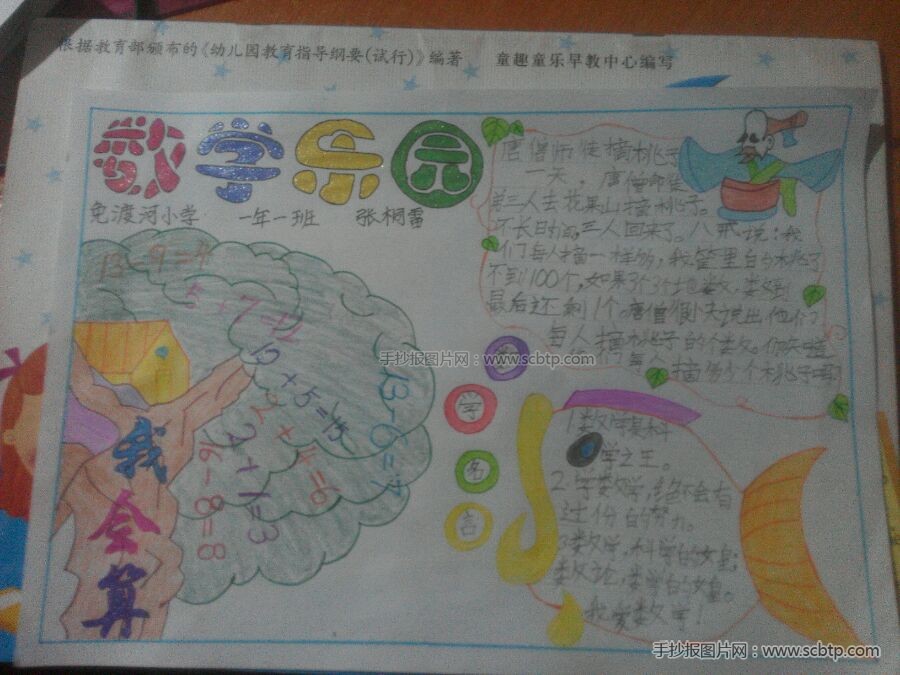 根据教育部颁布的《幼儿园教育指导纲要(试行)》编著
童趣童乐早教中心编写
数学乐园
免渡河小学 一年一班 张桐雷
唐僧师徒摘桃子
一天，唐僧师徒
三人去花果山摘桃子。
不长日时间，三人回来了。八戒说：我
们每人摘一样多，我筐里的桃子
不到100个，如果3个3个地数，数到
最后还剩1个。唐僧很快说出他们
每人摘桃子的个数。你知道
他们每个摘多少个桃子吗
13-9=4
5+7=12
10+5=15
2+4=6
2+1=3
16-8=8
13-6=7
我会算
数学名言
1数学是科
学之王。
2.学数学，绝不会有
过份的努力。
3数学，科学的女皇；
数论，数学的女皇。
我爱数学！
手抄报图片网：www.scbtp.com
手抄报图片网：www.scbtp.com